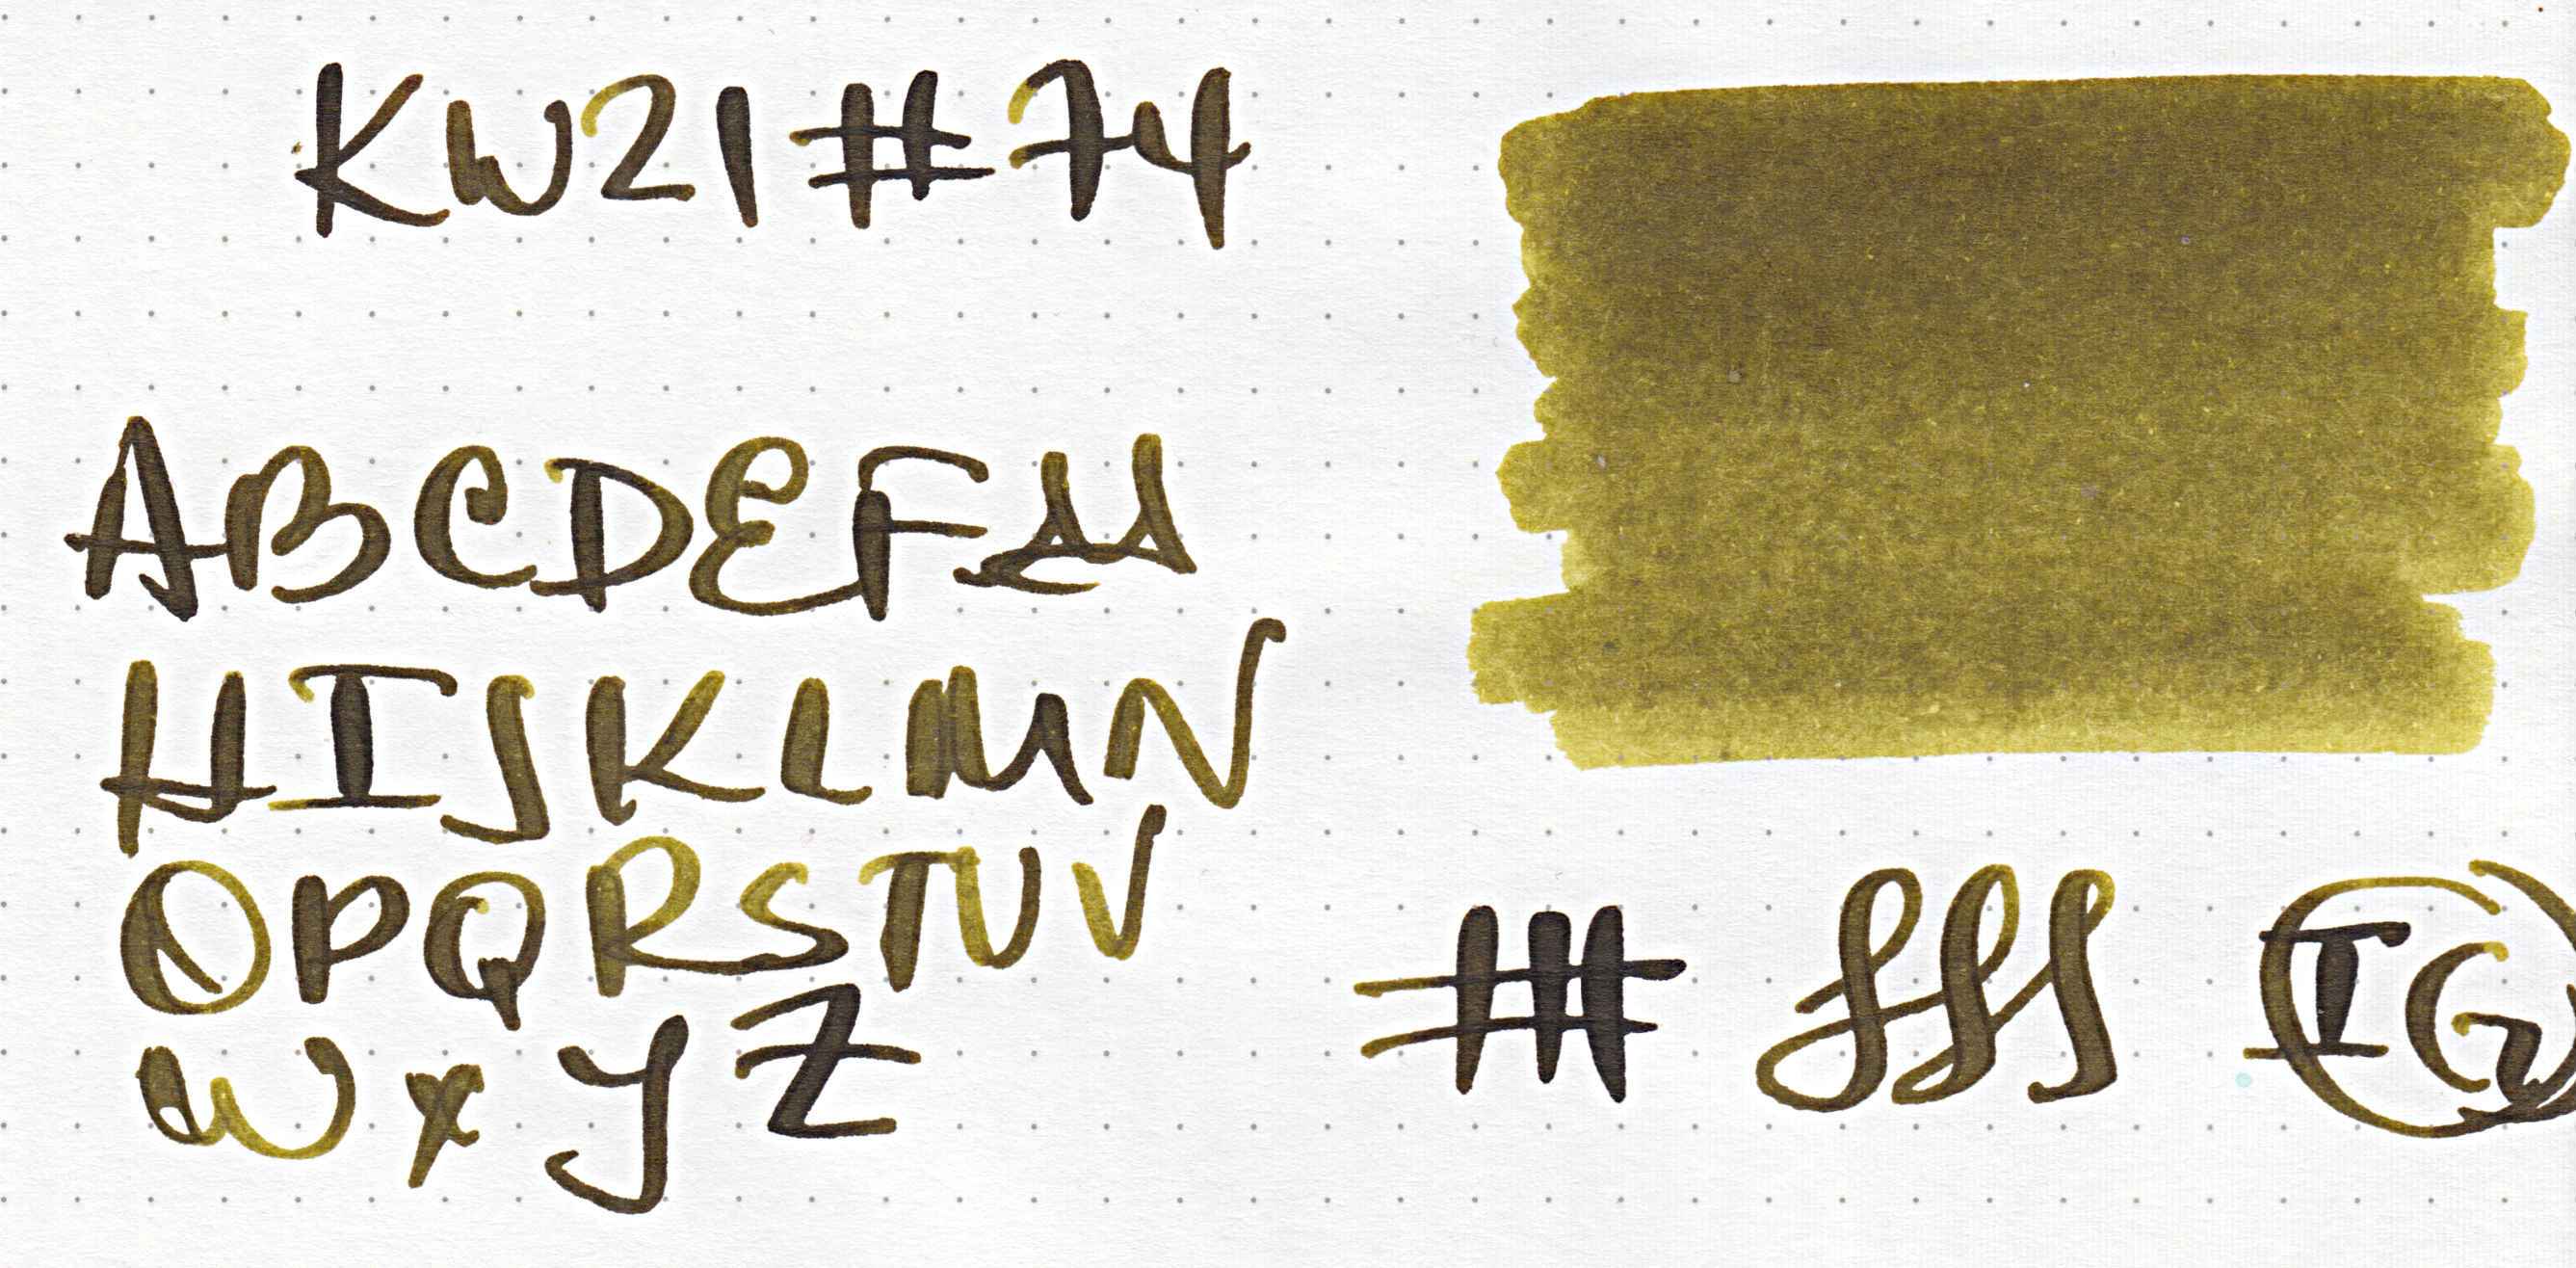 KWZI #74
ABCDEF
HIJKLMN
OPQRSTUV
WXYZ
IG